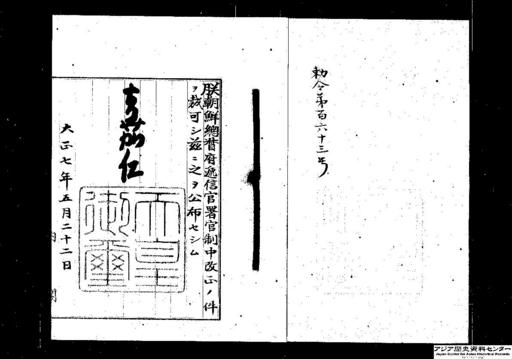 勅令第百六十三号
朕朝鮮總督府遞信官署官制中改正ノ件
ヲ裁可シ茲ニ之ヲ公布セシム
嘉仁
天皇御璽
大正七年五月二十二日
内閣
アジア歴史資料センター
Japan Center for Asian Historical Records